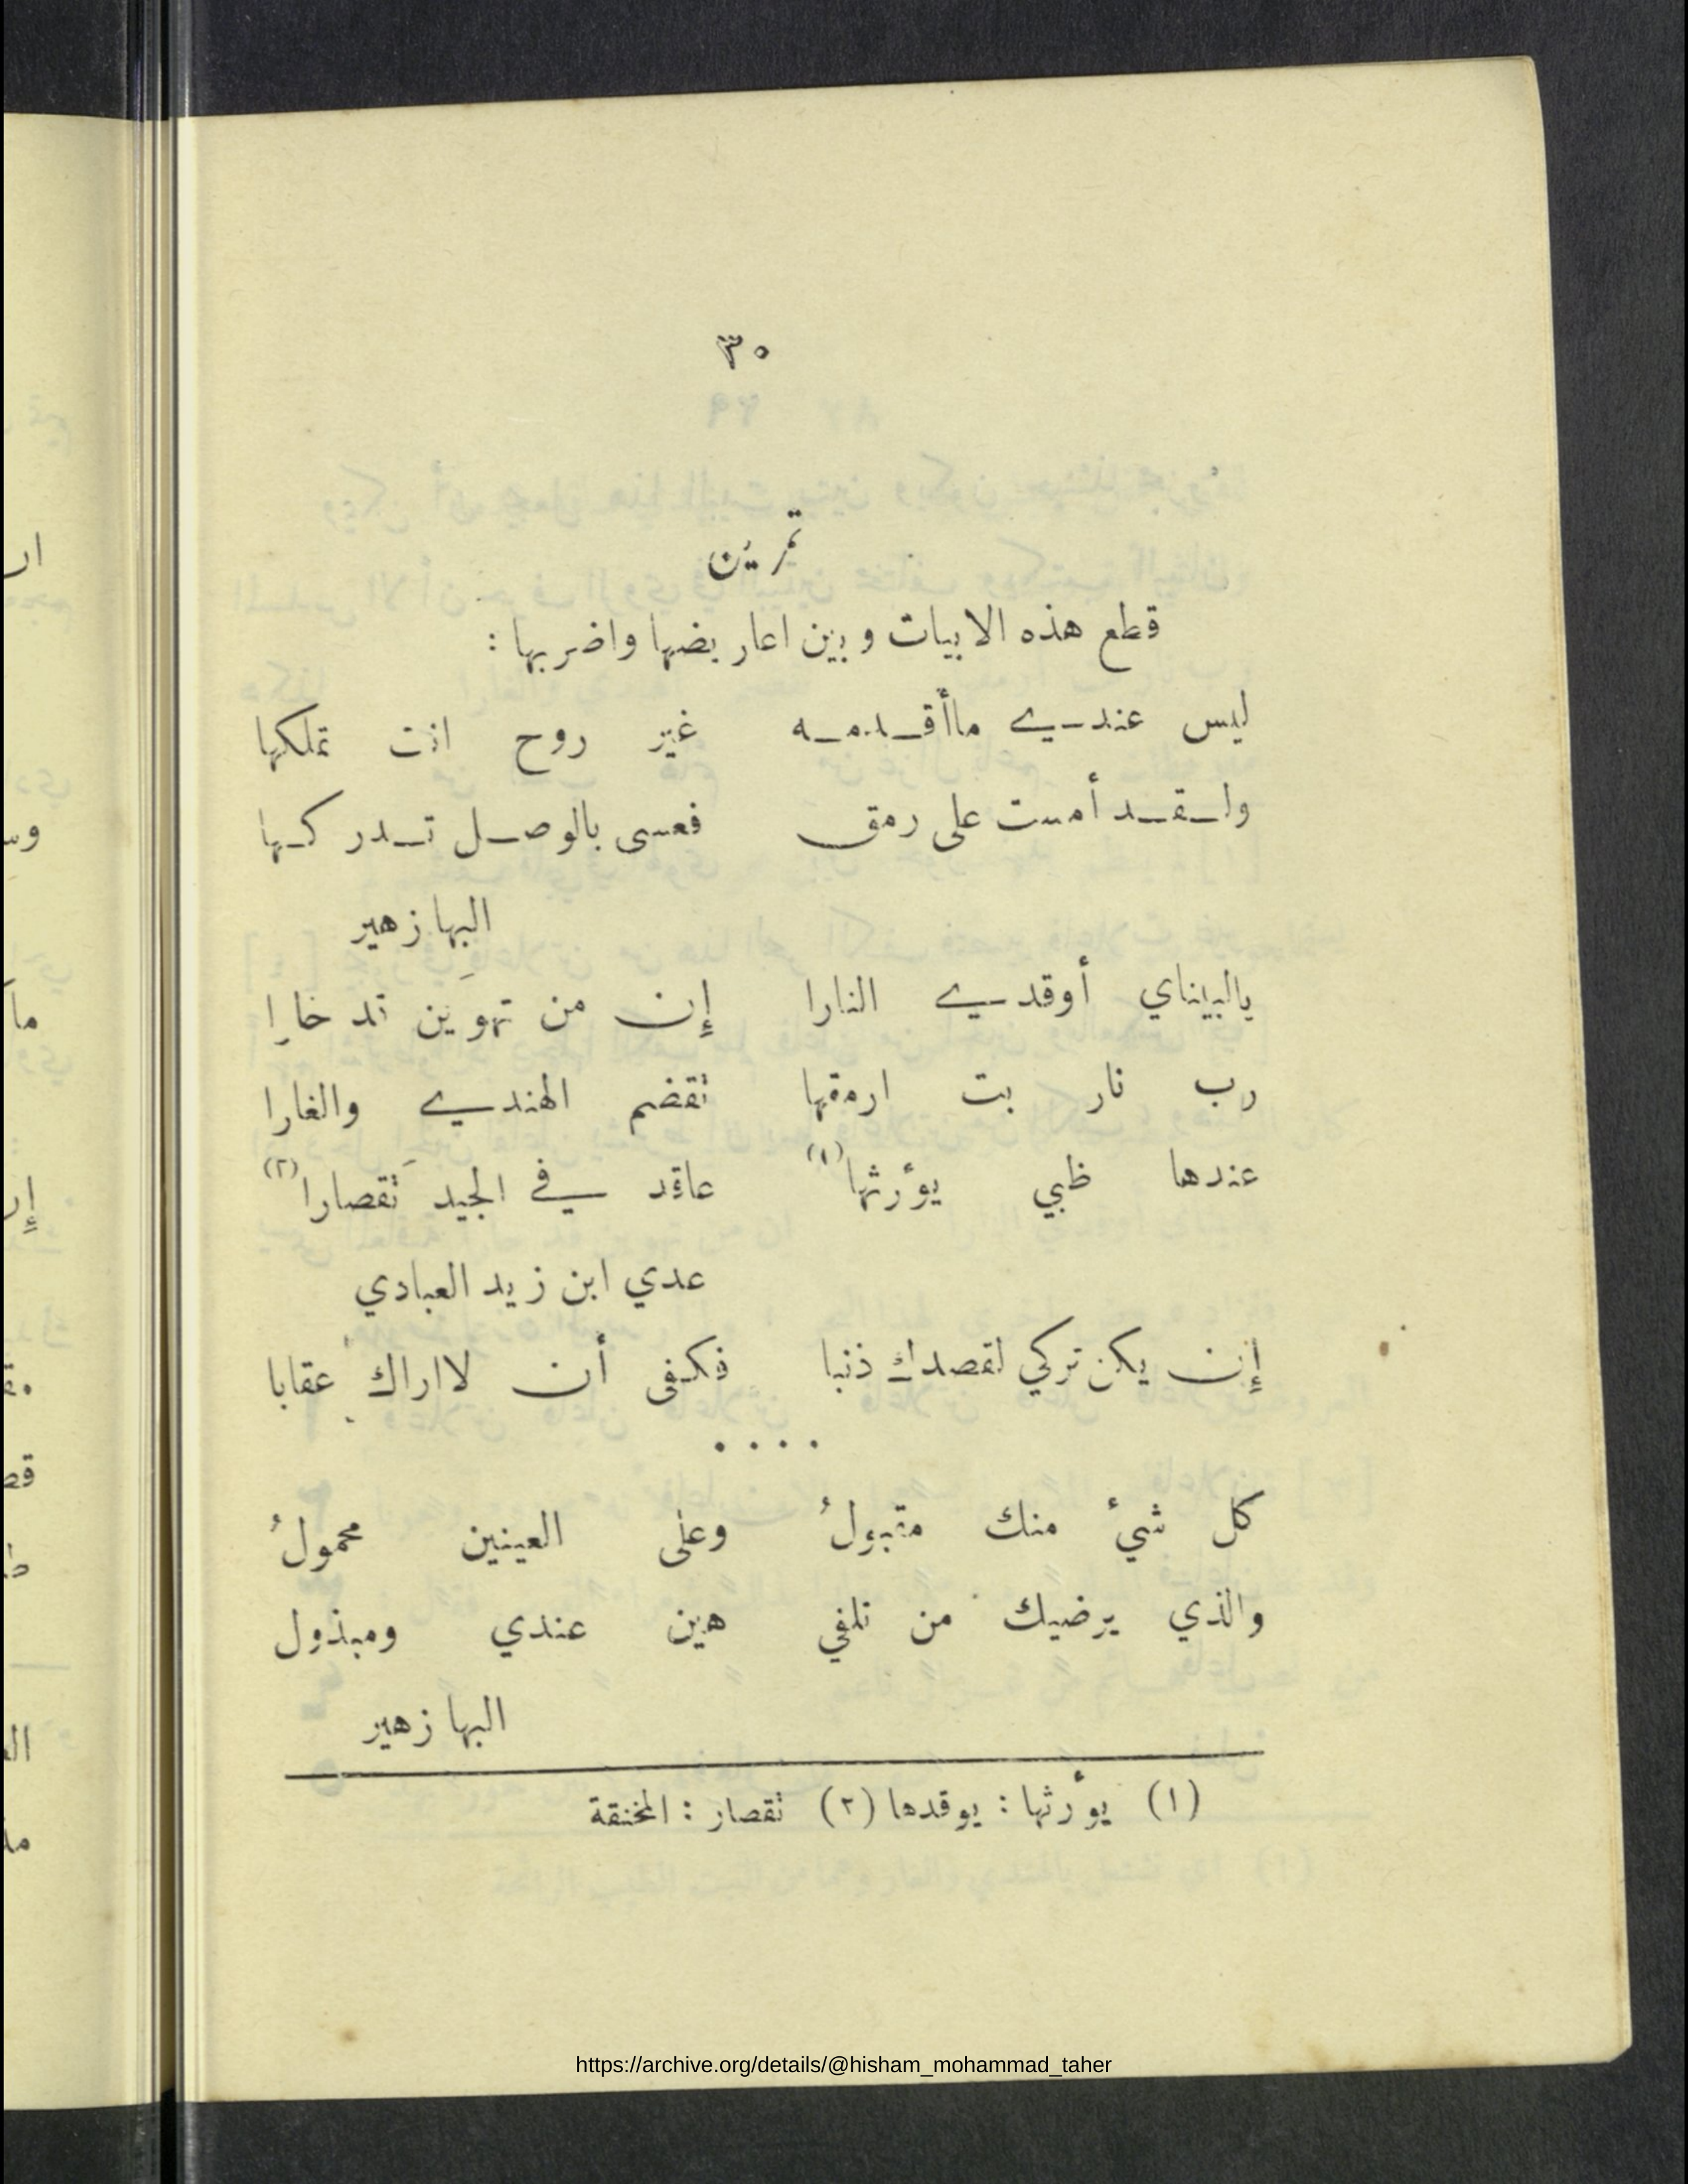 ٣٠
تمرين
قطع هذه الابيات وبين اعاريضها واضربها :
ليس عندي ماأقدمه غير روح انت تملكها
ولقد أمست على رمق فعسى بالوصل تدركها
البها زهير
يالبيناي أوقدي النارا إن من تهوين قد حارا
رب نار بت ارمقها تقضم الهندي والغارا
عندها ظبي يؤرثها (١) عاقد في الجيد تقصارا (٢)
عدي ابن زيد العبادي
إن يكن تركي لقصدك ذنبا فكفى أن لااراك عقابا
....
كل شيء منك مقبولُ وعلى العينين محمولُ
والذي يرضيك من تلفي هين عندي ومبذول
البها زهير
(١) يؤرثها : يوقدها (٢) تقصار : المخنقة
https://archive.org/details/@hisham_mohammad_taher